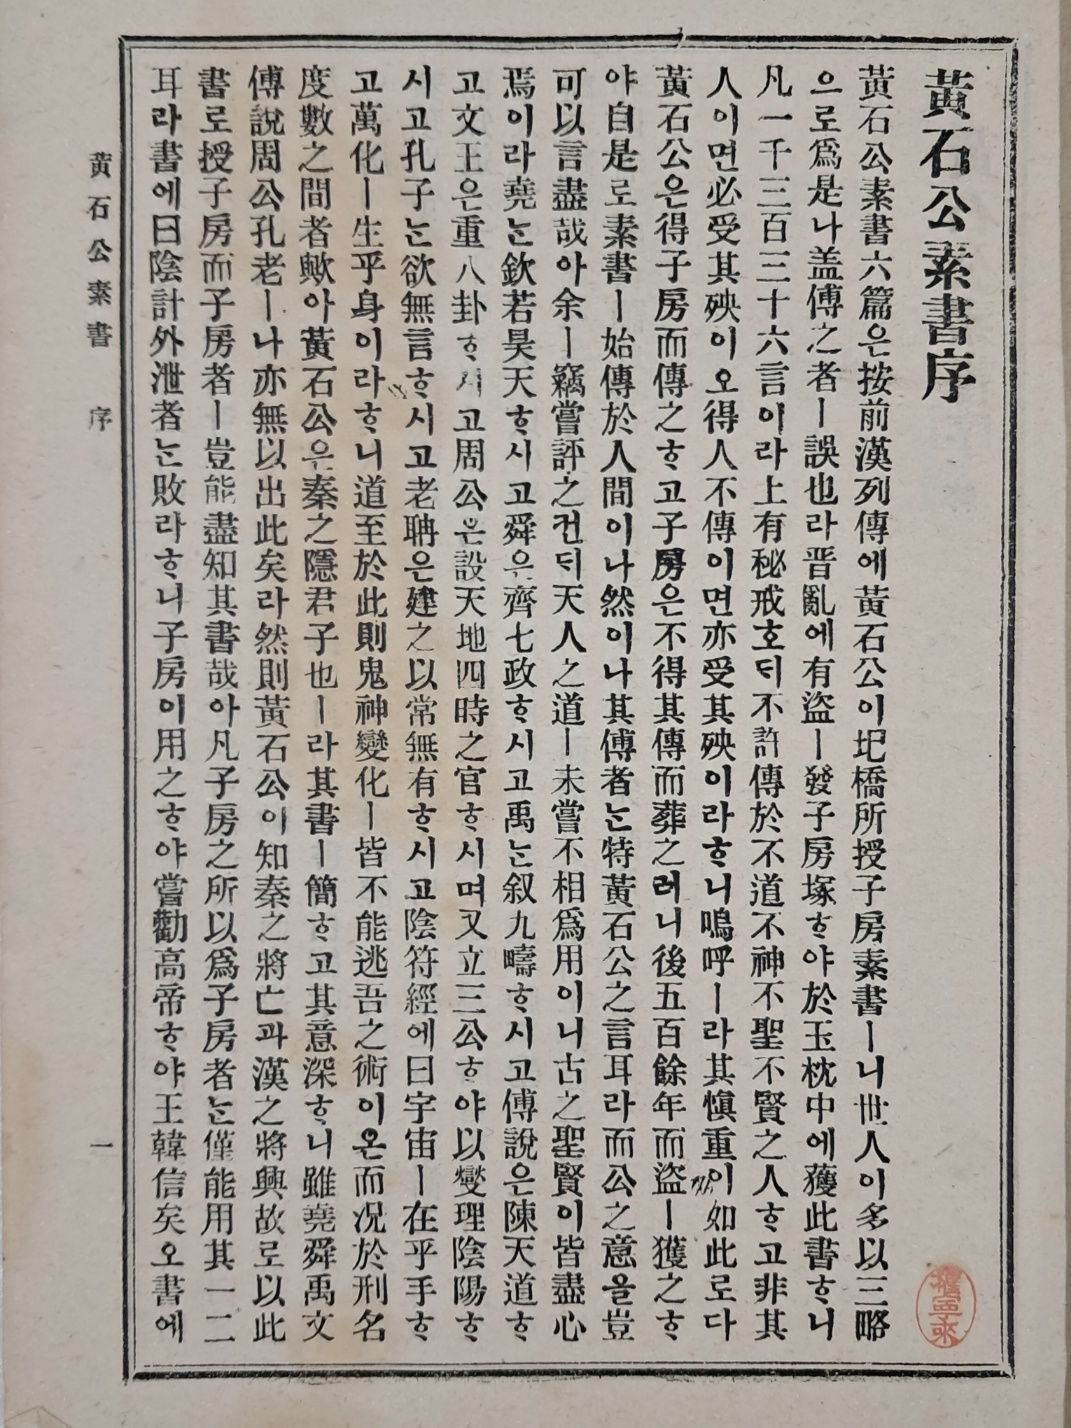 黃石公素書序
黃石公素書六篇은按前漢列傳에黃石公이圯橋所授子房素書ㅣ니世人이多以三略
으로爲是나盖傳之者ㅣ誤也라晋亂에有盜ㅣ發子房塚ᄒᆞ야於玉枕中에獲此書ᄒᆞ니
凡一千三百三十六言이라上有秘戒호ᄃᆡ不許傳於不道不神不聖不賢之人ᄒᆞ고非其
人이면必受其殃이오得人不傳이면亦受其殃이라ᄒᆞ니嗚呼ㅣ라其愼重이如此로다
黃石公은得子房而傳之ᄒᆞ고子房은不得其傳而葬之러니後五百餘年而盜ㅣ獲之ᄒᆞ
야自是로素書ㅣ始傳於人間이나然이나其傳者ᄂᆞᆫ特黃石公之言耳라而公之意을豈
可以言盡哉아余ㅣ竊嘗評之컨ᄃᆡ天人之道ㅣ未嘗不相爲用이니古之聖賢이皆盡心
焉이라堯ᄂᆞᆫ欽若昊天ᄒᆞ시고舜은齊七政ᄒᆞ시고禹ᄂᆞᆫ叙九疇ᄒᆞ시고傅說은陳天道ᄒᆞ
고文王은重八卦ᄒᆞ시고周公은設天地四時之官ᄒᆞ시며又立三公ᄒᆞ야以燮理陰陽ᄒᆞ
시고孔子ᄂᆞᆫ欲無言ᄒᆞ시고老聃은建之以常無有ᄒᆞ시고陰符經에曰宇宙ㅣ在乎手ᄒᆞ
고萬化ㅣ生乎身이라ᄒᆞ니道至於此則鬼神變化ㅣ皆不能逃吾之術이온而况於刑名
度數之間者歟아黃石公은秦之隱君子也ㅣ라其書ㅣ簡ᄒᆞ고其意深ᄒᆞ니雖堯舜禹文
傅說周公孔老ㅣ나亦無以出此矣라然則黃石公이知秦之將亡과漢之將興故로以此
書로授子房而子房者ㅣ豈能盡知其書哉아凡子房之所以爲子房者ᄂᆞᆫ僅能用其一二
耳라書에曰陰計外泄者ᄂᆞᆫ敗라ᄒᆞ니子房이用之ᄒᆞ야嘗勸高帝ᄒᆞ야王韓信矣오書에
黃石公素書 序 一